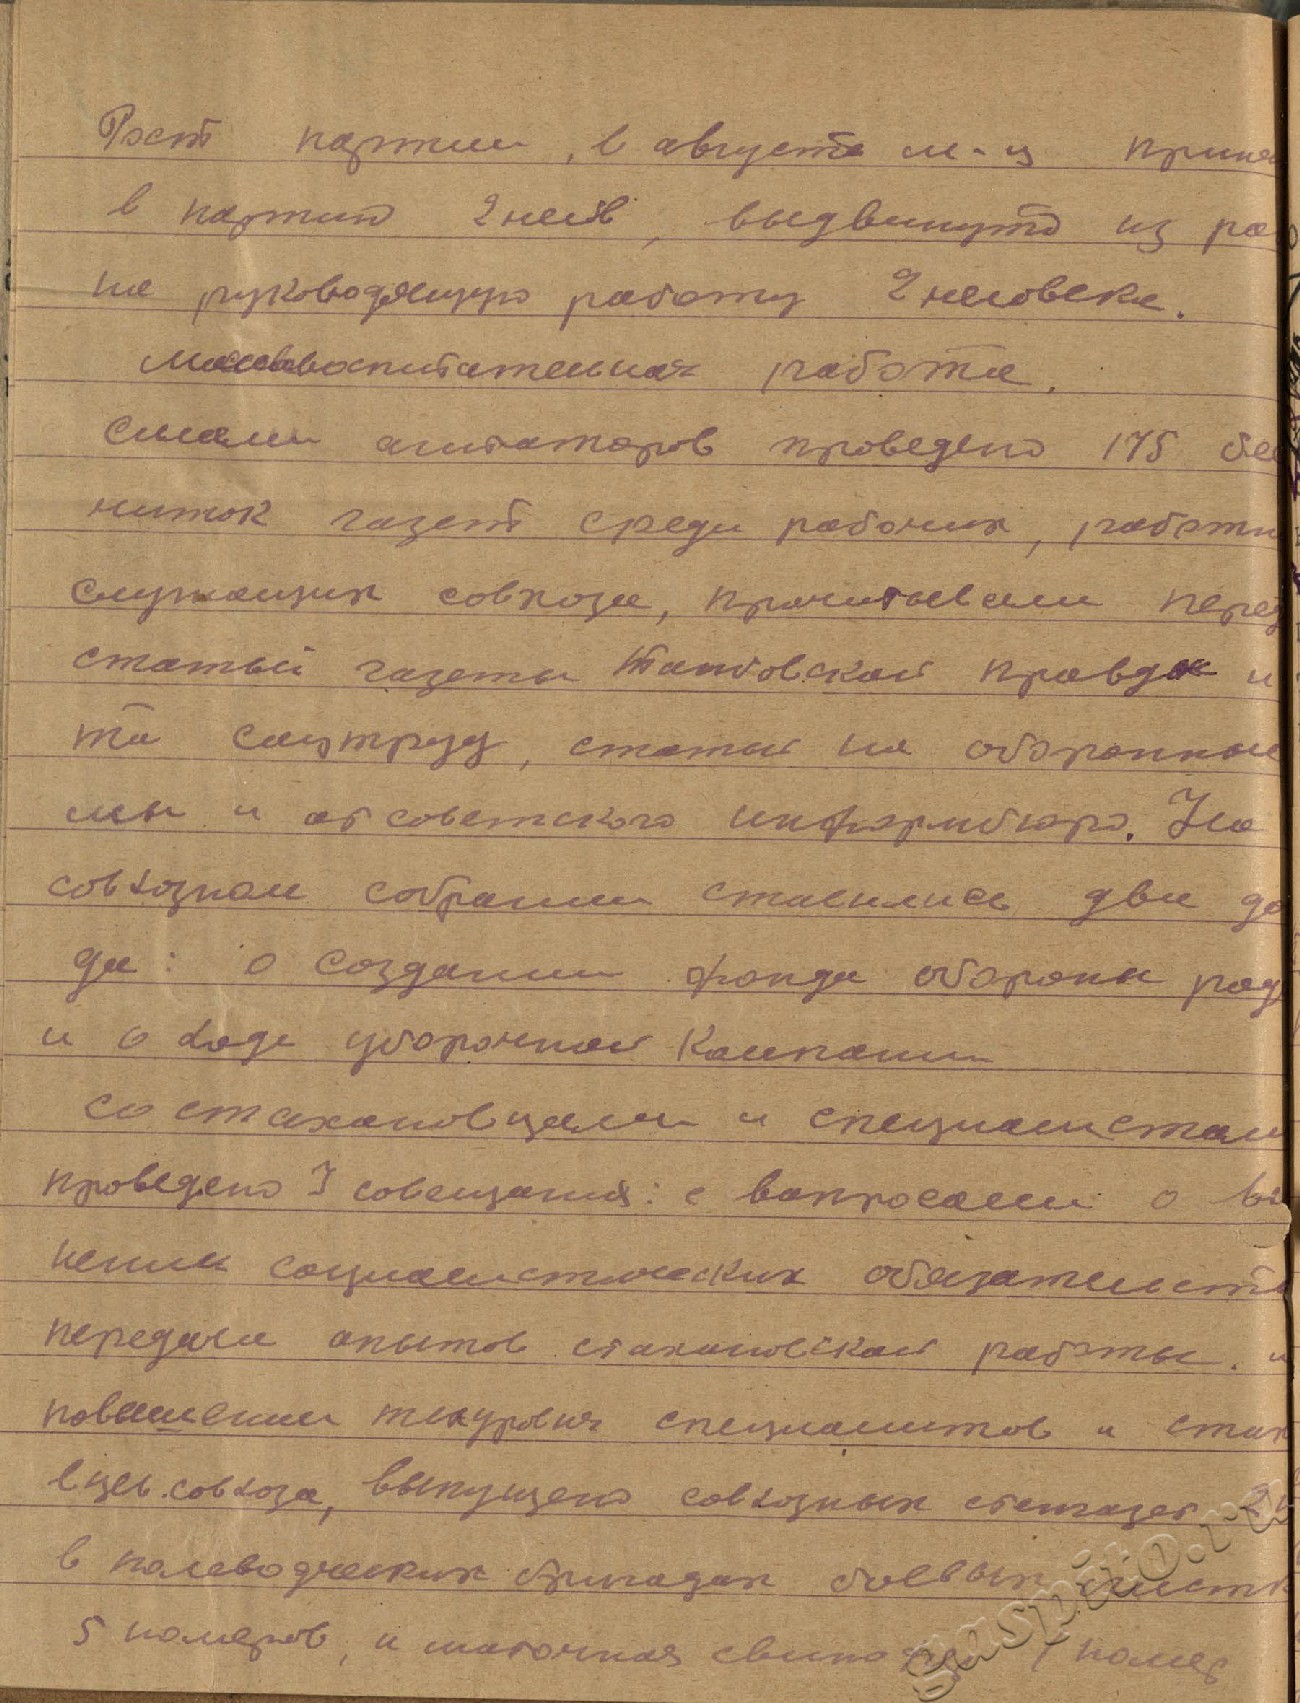 Рост партии, в августе м-ц приня
в партию 2 чел в, выдвинуто из ра
на руководящую работу 2 человека.
Массвоспитательная работа.
Силами агитаторов проведено 175 бес
читок газет среди рабочих, работн
служащих совхоза, прочитывали перед
статьй газеты Тамбовской правды и
та соцтруд, статьи на оборонные
мы и от советского информбюро. На
совхозном собрании ставились два до
да: о создании фонда обороны род
и о ходе уборочной Кампании
со стахановцами и специалистам
проведено 3 совещания: с вопросами о вы
нении социалистических обязательств
передачи опытов стахановской работы. и
повышении техуровня специалитов и стах
вцев совхоза, выпущено совхозных стенгазет 2 н
в полеводческих бригадах боевых листк
5 номеров, и маточная свино 1 номер
gaspito.ru